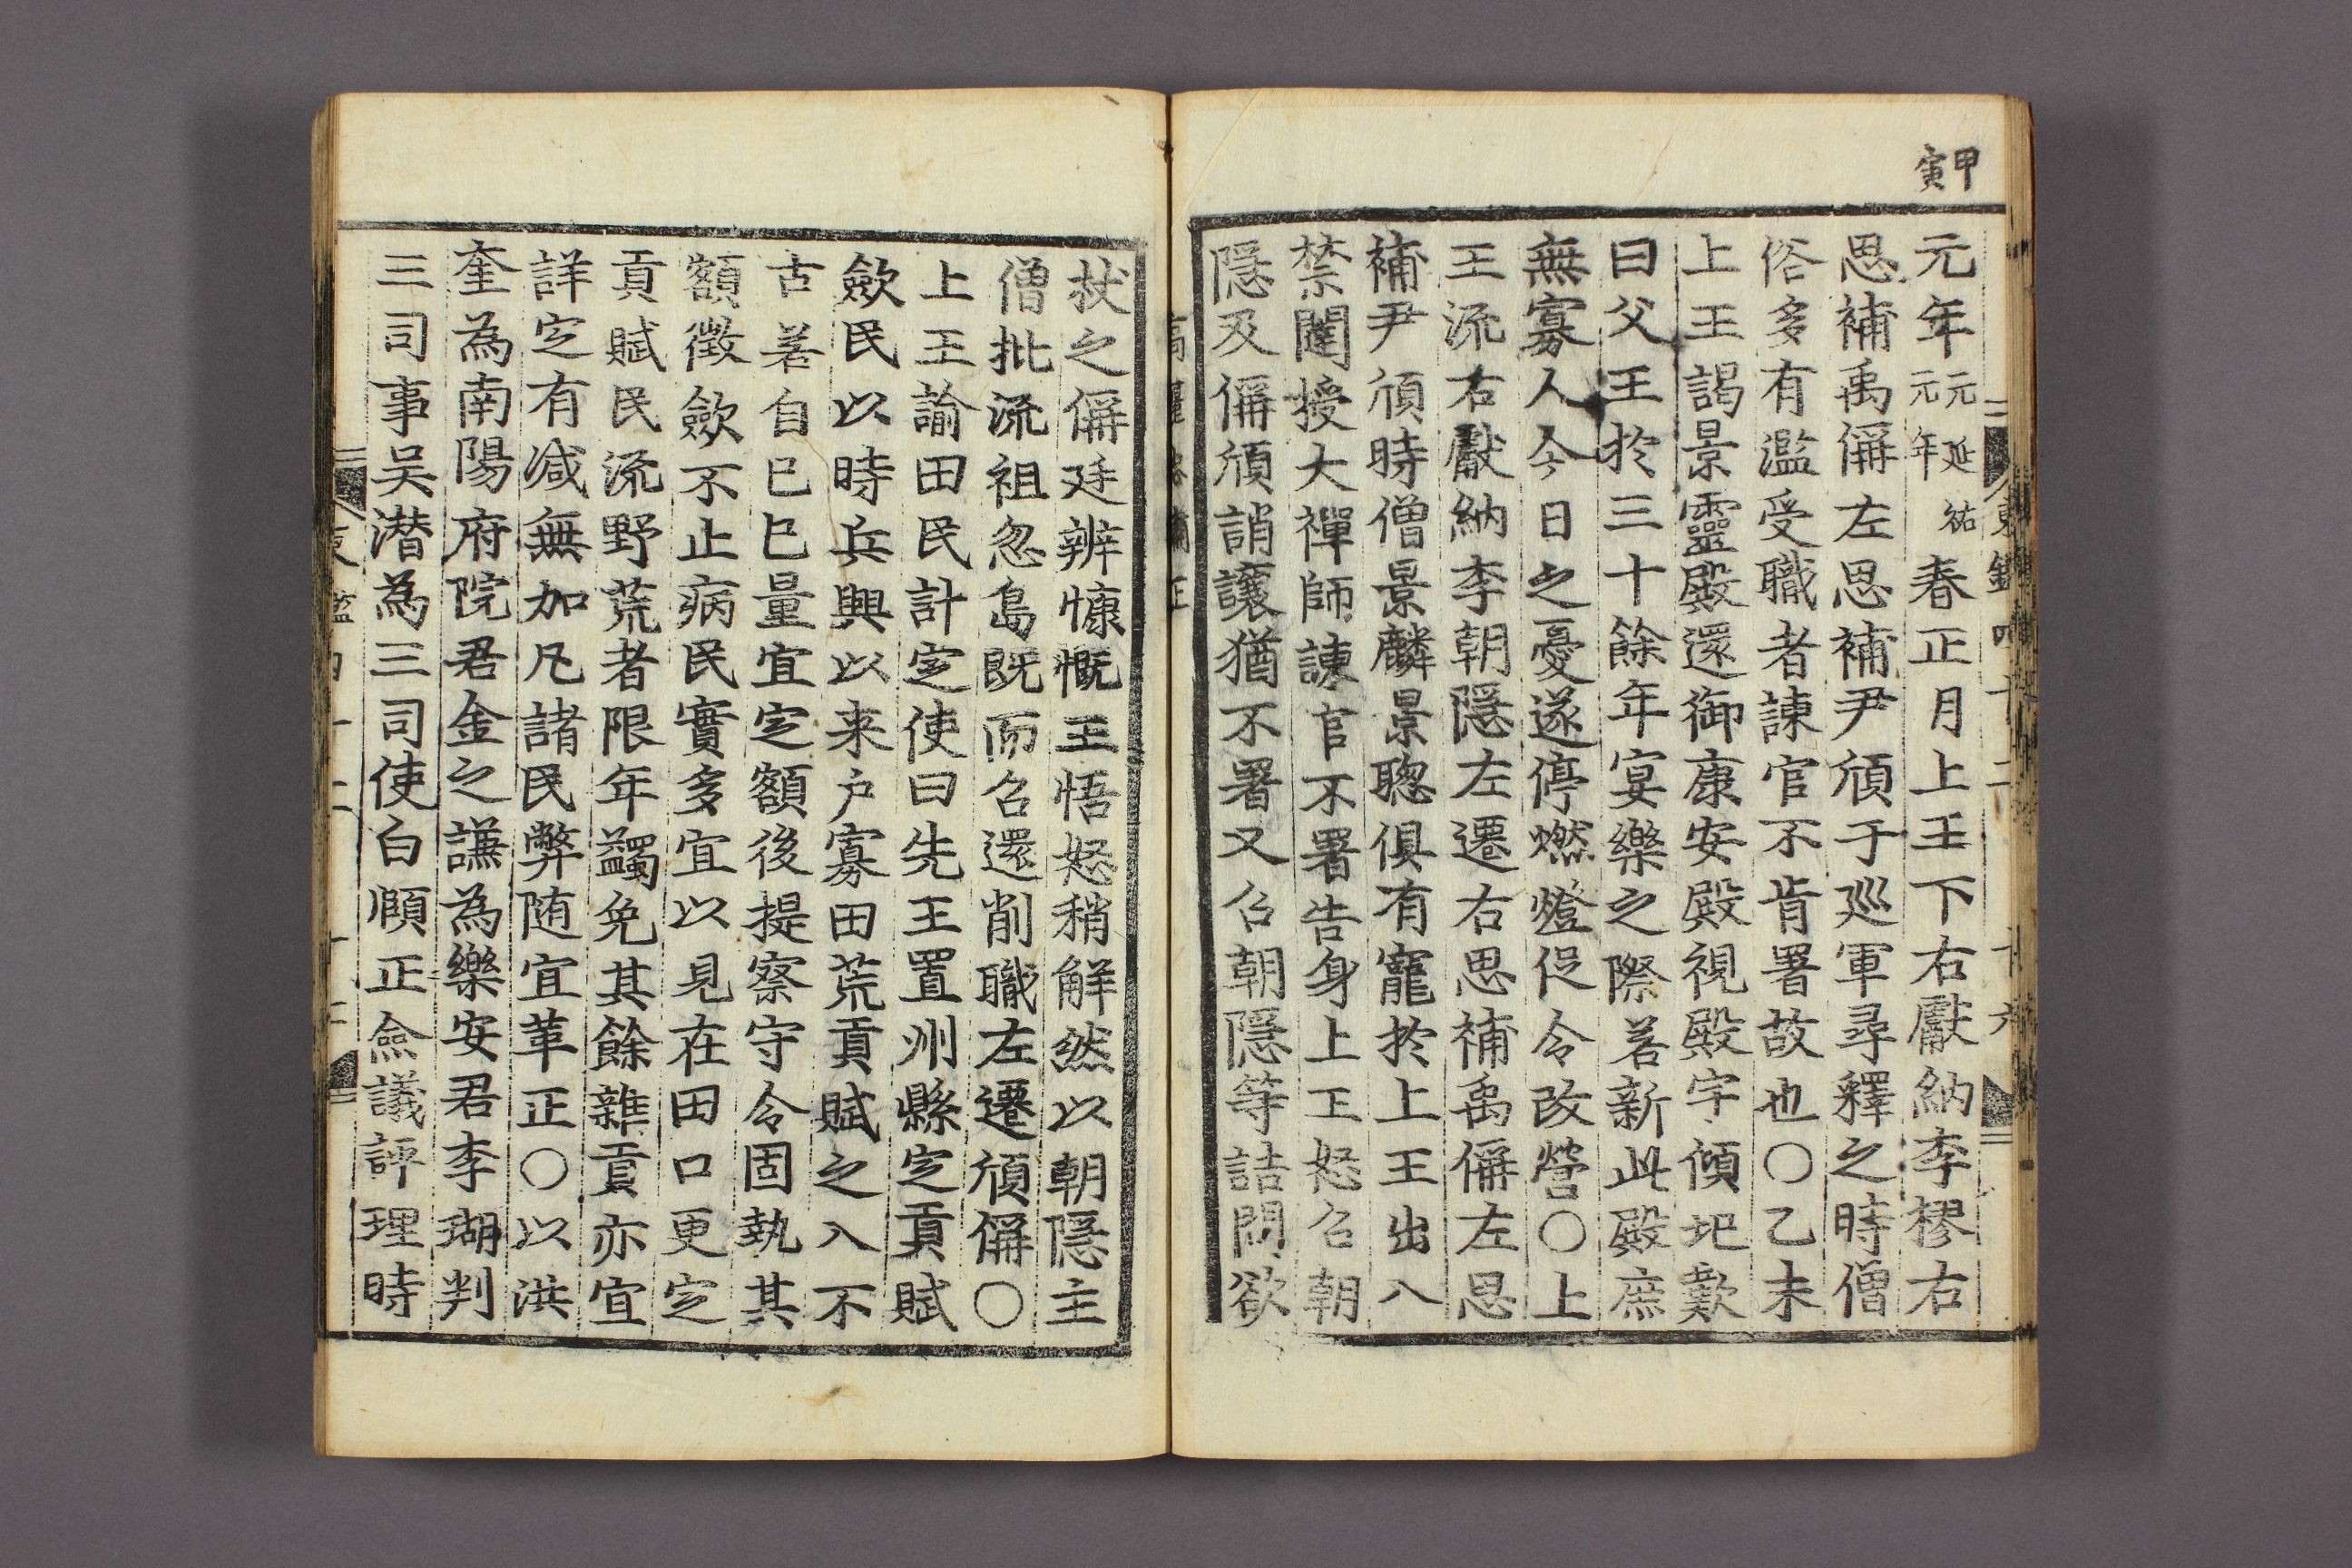 甲寅
元年元延祐元年春正月上王下右獻納李樛右
思補禹偁左思補尹頎于巡軍尋釋之時僧
俗多有濫受職者諫官不肯署故也〇乙未
上王謁景靈殿還御康安殿視殿宇傾圮歎
曰父王於三十餘年宴樂之際若新此殿庶
無寡人今日之憂遂停燃燈促令改營〇上
王流右獻納李朝隱左遷右思補禹偁左思
補尹頎時僧景麟景聰俱有寵於上王出入
禁闥授大禪師諫官不署告身上王怒召朝
隱及偁頎誚讓猶不署又召朝隱等詰問欲
杖之偁廷辨慷慨王悟怒稍解然以朝隱主
僧批流祖忽島既而召還削職左遷頎偁〇
上王諭田民計定使曰先王置州縣定貢賦
歛民以時兵興以来户寡田荒貢賦之入不
古若自己巳量宜定額後提察守令固執其
額徵歛不止病民實多宜以見在田口更定
貢賦民流野荒者限年蠲免其餘雜貢亦宜
詳定有减無加凡諸民弊随宜革正〇以洪
奎為南陽府院君金之謙為樂安君李瑚判
三司事吴潜為三司使白頥正僉議評理時